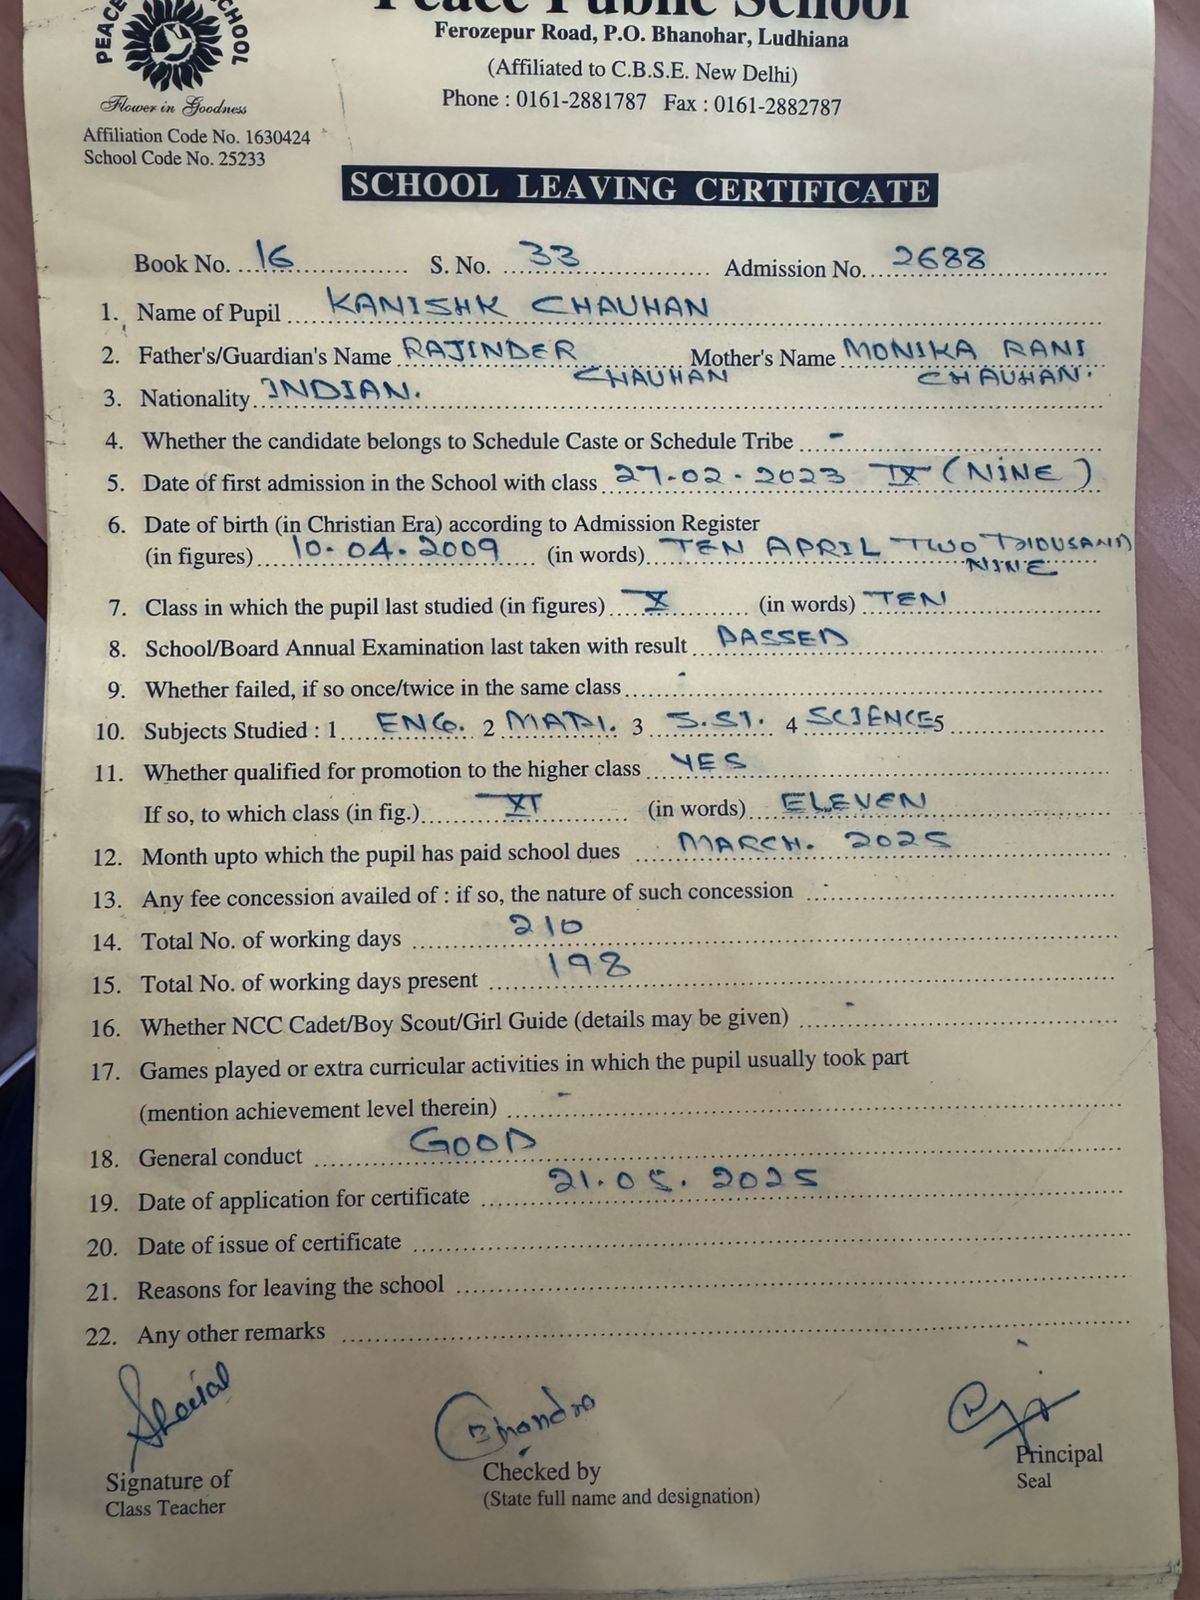 PEACE SCHOOL
Peace Public School
Ferozepur Road, P.O. Bhanohar, Ludhiana
(Affiliated to C.B.S.E. New Delhi)
Phone : 0161-2881787 Fax : 0161-2882787
Flower in Goodness
Affiliation Code No. 1630424
School Code No. 25233
SCHOOL LEAVING CERTIFICATE
Book No. 16 S. No. 33 Admission No. 2688
1. Name of Pupil KANISHK CHAUHAN
2. Father's/Guardian's Name RAJINDER CHAUHAN Mother's Name MONIKA RANI CHAUHAN.
3. Nationality INDIAN.
4. Whether the candidate belongs to Schedule Caste or Schedule Tribe -
5. Date of first admission in the School with class 27-02-2023 IX (NINE)
6. Date of birth (in Christian Era) according to Admission Register
(in figures) 10.04.2009 (in words) TEN APRIL TWO THOUSAND NINE
7. Class in which the pupil last studied (in figures) X (in words) TEN
8. School/Board Annual Examination last taken with result PASSED
9. Whether failed, if so once/twice in the same class -
10. Subjects Studied : 1 ENG. 2 MATH. 3 S.ST. 4 SCIENCE 5
11. Whether qualified for promotion to the higher class YES
If so, to which class (in fig.) XI (in words) ELEVEN
12. Month upto which the pupil has paid school dues MARCH. 2025
13. Any fee concession availed of : if so, the nature of such concession -
14. Total No. of working days 210
15. Total No. of working days present 198
16. Whether NCC Cadet/Boy Scout/Girl Guide (details may be given) -
17. Games played or extra curricular activities in which the pupil usually took part
(mention achievement level therein) -
18. General conduct GOOD
19. Date of application for certificate 21.05.2025
20. Date of issue of certificate
21. Reasons for leaving the school
22. Any other remarks
Signature of Checked by Principal
Class Teacher (State full name and designation) Seal